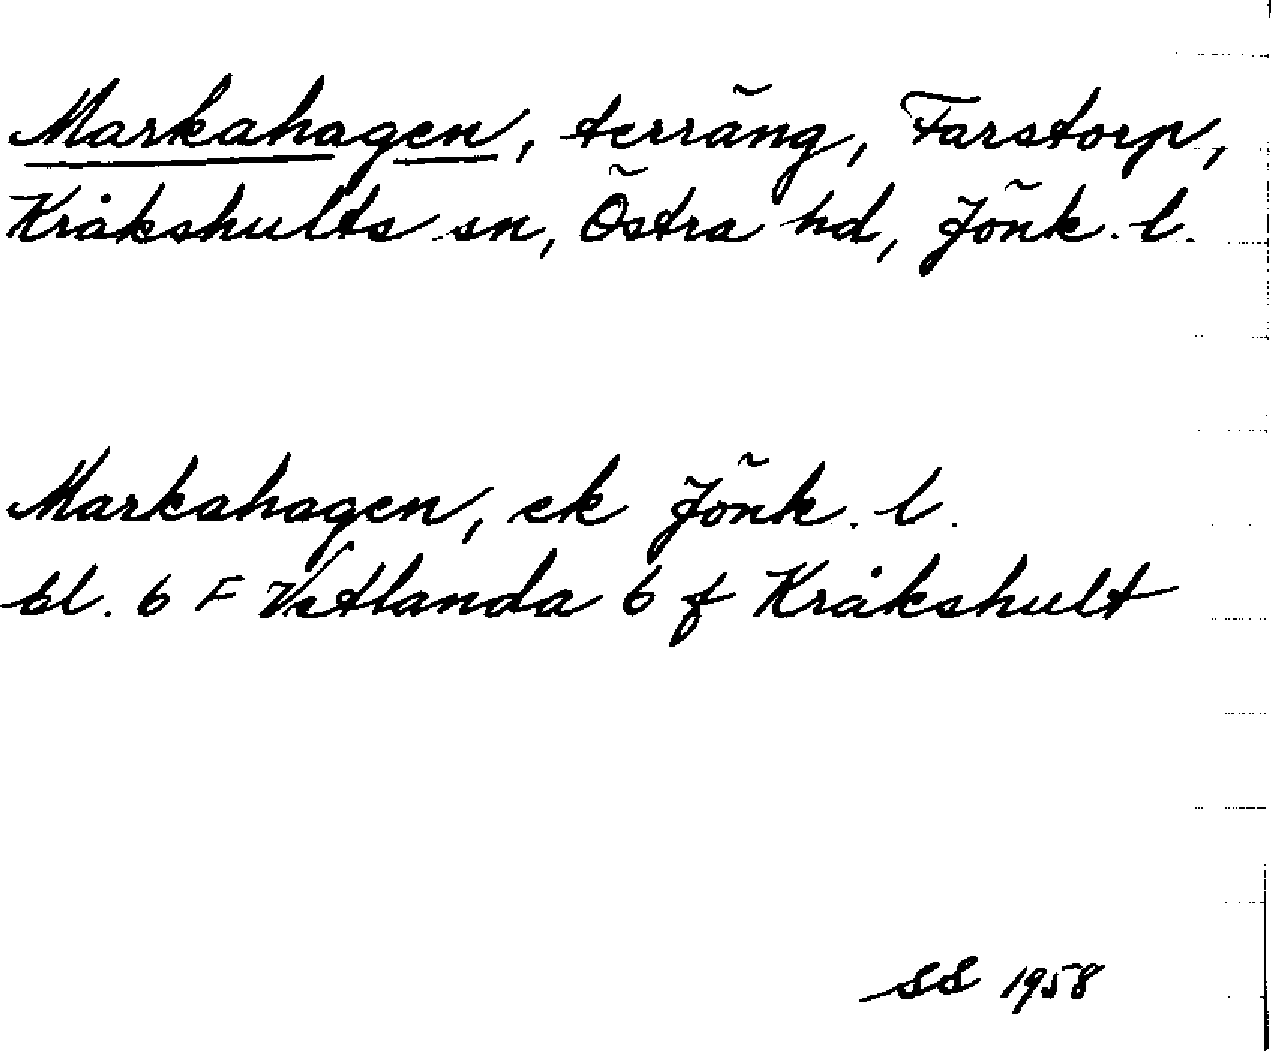 Markahagen, terräng, Farstorp,
Kråkshults sn, Östra hd, Jönk. l.
Markahagen, ek Jönk. l.
bl. 6 F Vetlanda 6 f Kråkshult
SS 1958